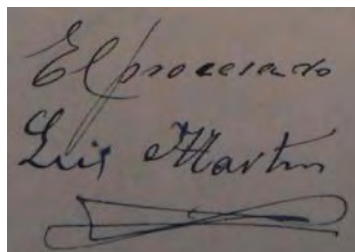 El procesado
Luis Martin